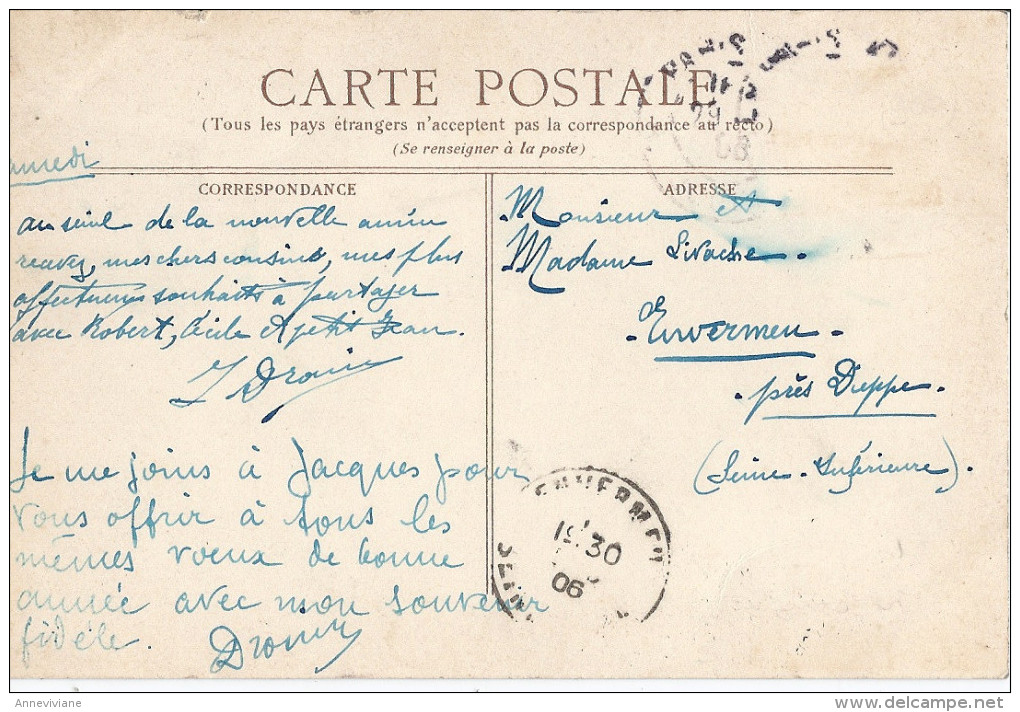 CARTE POSTALE
(Tous les pays étrangers n'acceptent pas la correspondance au recto)
(Se renseigner à la poste)
amedi
CORRESPONDANCE
au seuil de la nouvelle année
recevez, mes chers cousins, mes plus
affectueux souhaits à partager
avec Robert, Cécile et petit Jean.
J Drouin
Je me joins à Jacques pour
vous offrir à tous les
mêmes voeux de bonne
année avec mon souvenir
fidèle.
ADRESSE
Monsieur et
Madame Livache.
- Envermeu -
- près Dieppe -
(Seine-Inférieure).
PARIS
29
ENVERMEU
19 30
06
Anneviviane
delcampe.net